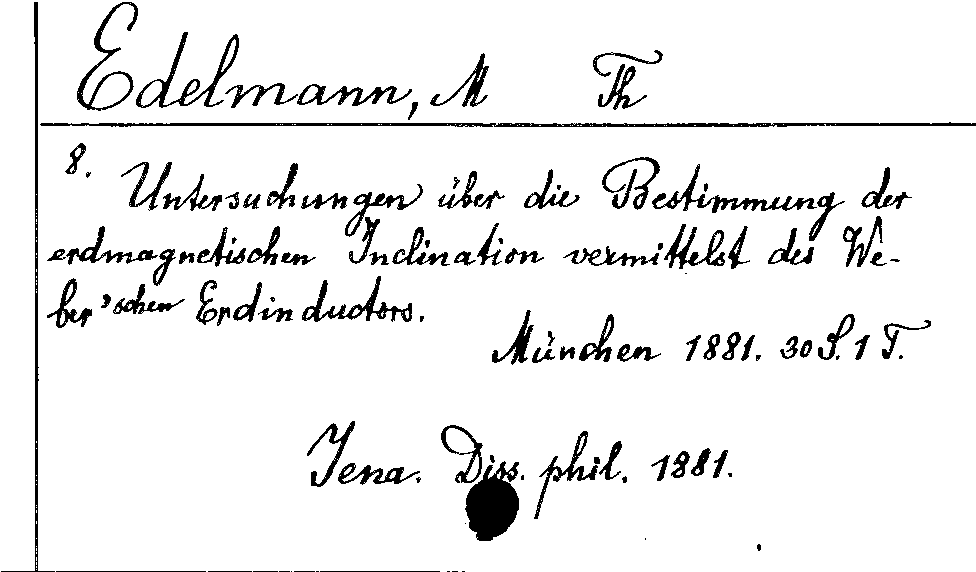 Edelmann, M Th
8.
Untersuchungen über die Bestimmung der
erdmagnetischen Inclination vermittelst des We-
ber'schen Erdinductors.
München 1881. 30 S. 1 T.
Jena. Diss. phil. 1881.